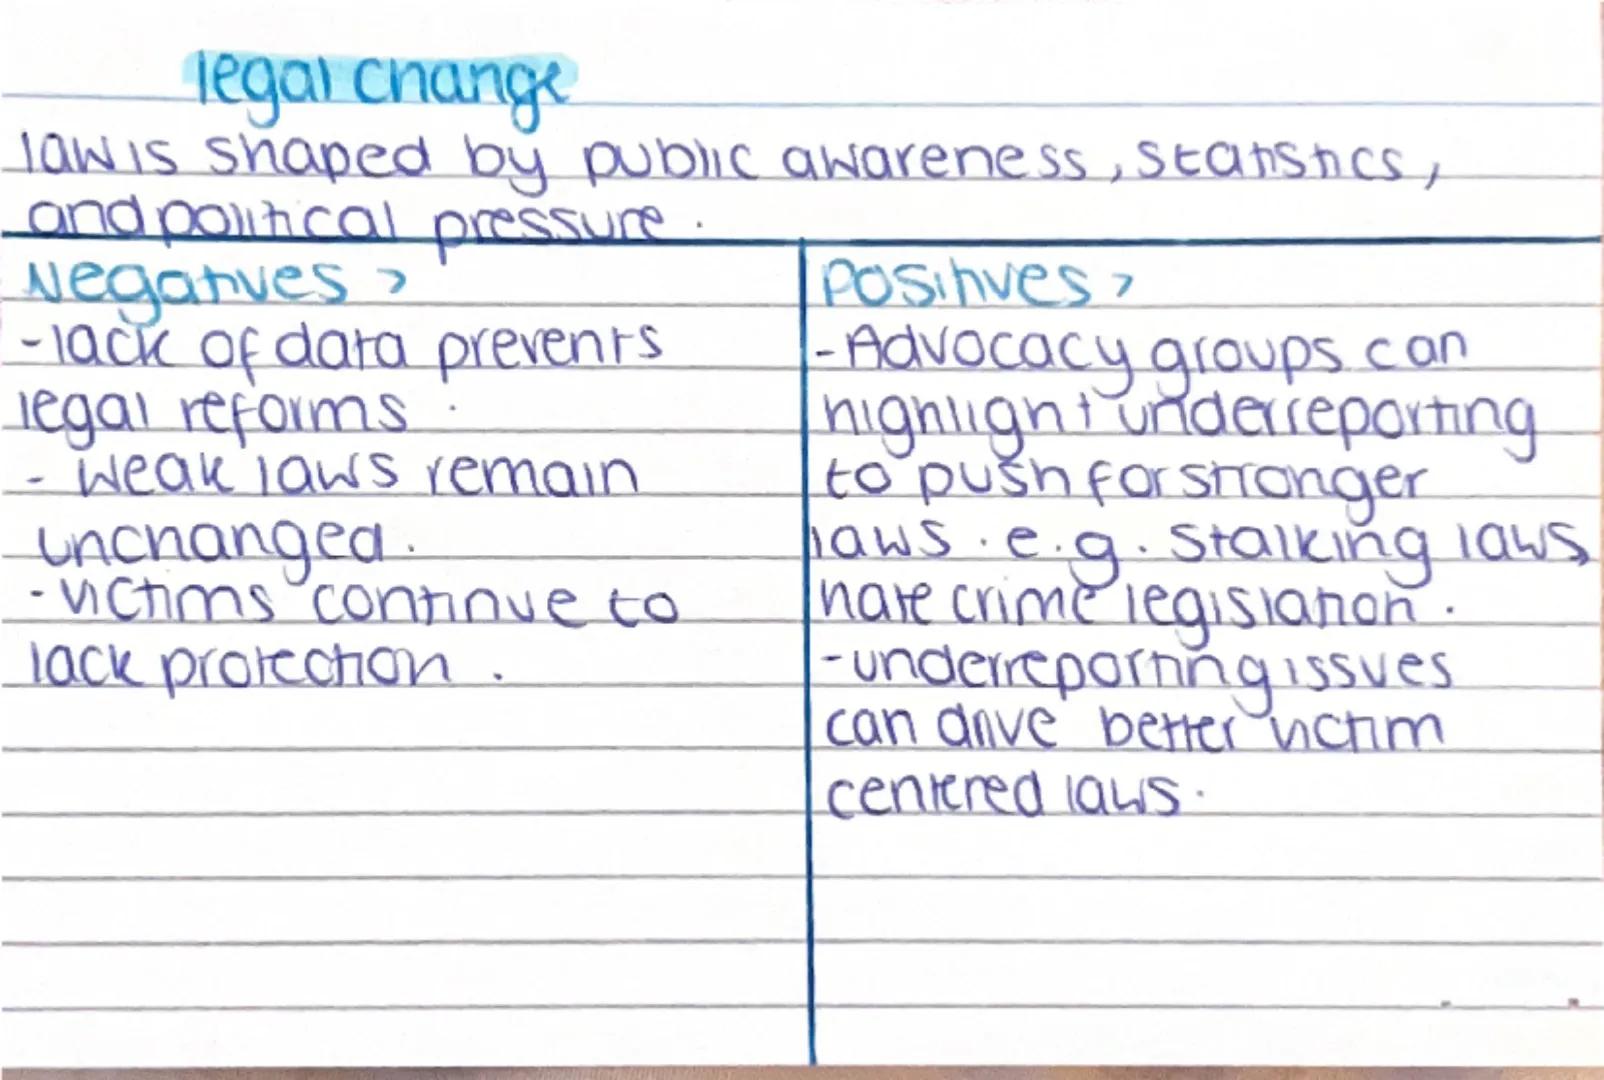 legal change
law is shaped by public awareness, statistics,
and political pressure.
Negatives >
-lack of data prevents
legal reforms.
- weak laws remain
unchanged.
-victims continue to
lack protection.
Positives >
-Advocacy groups can
highlight underreporting
to push for stronger
laws. e.g. stalking laws,
hate crime legislation.
-underreporting issues
can drive better victim
centered laws.